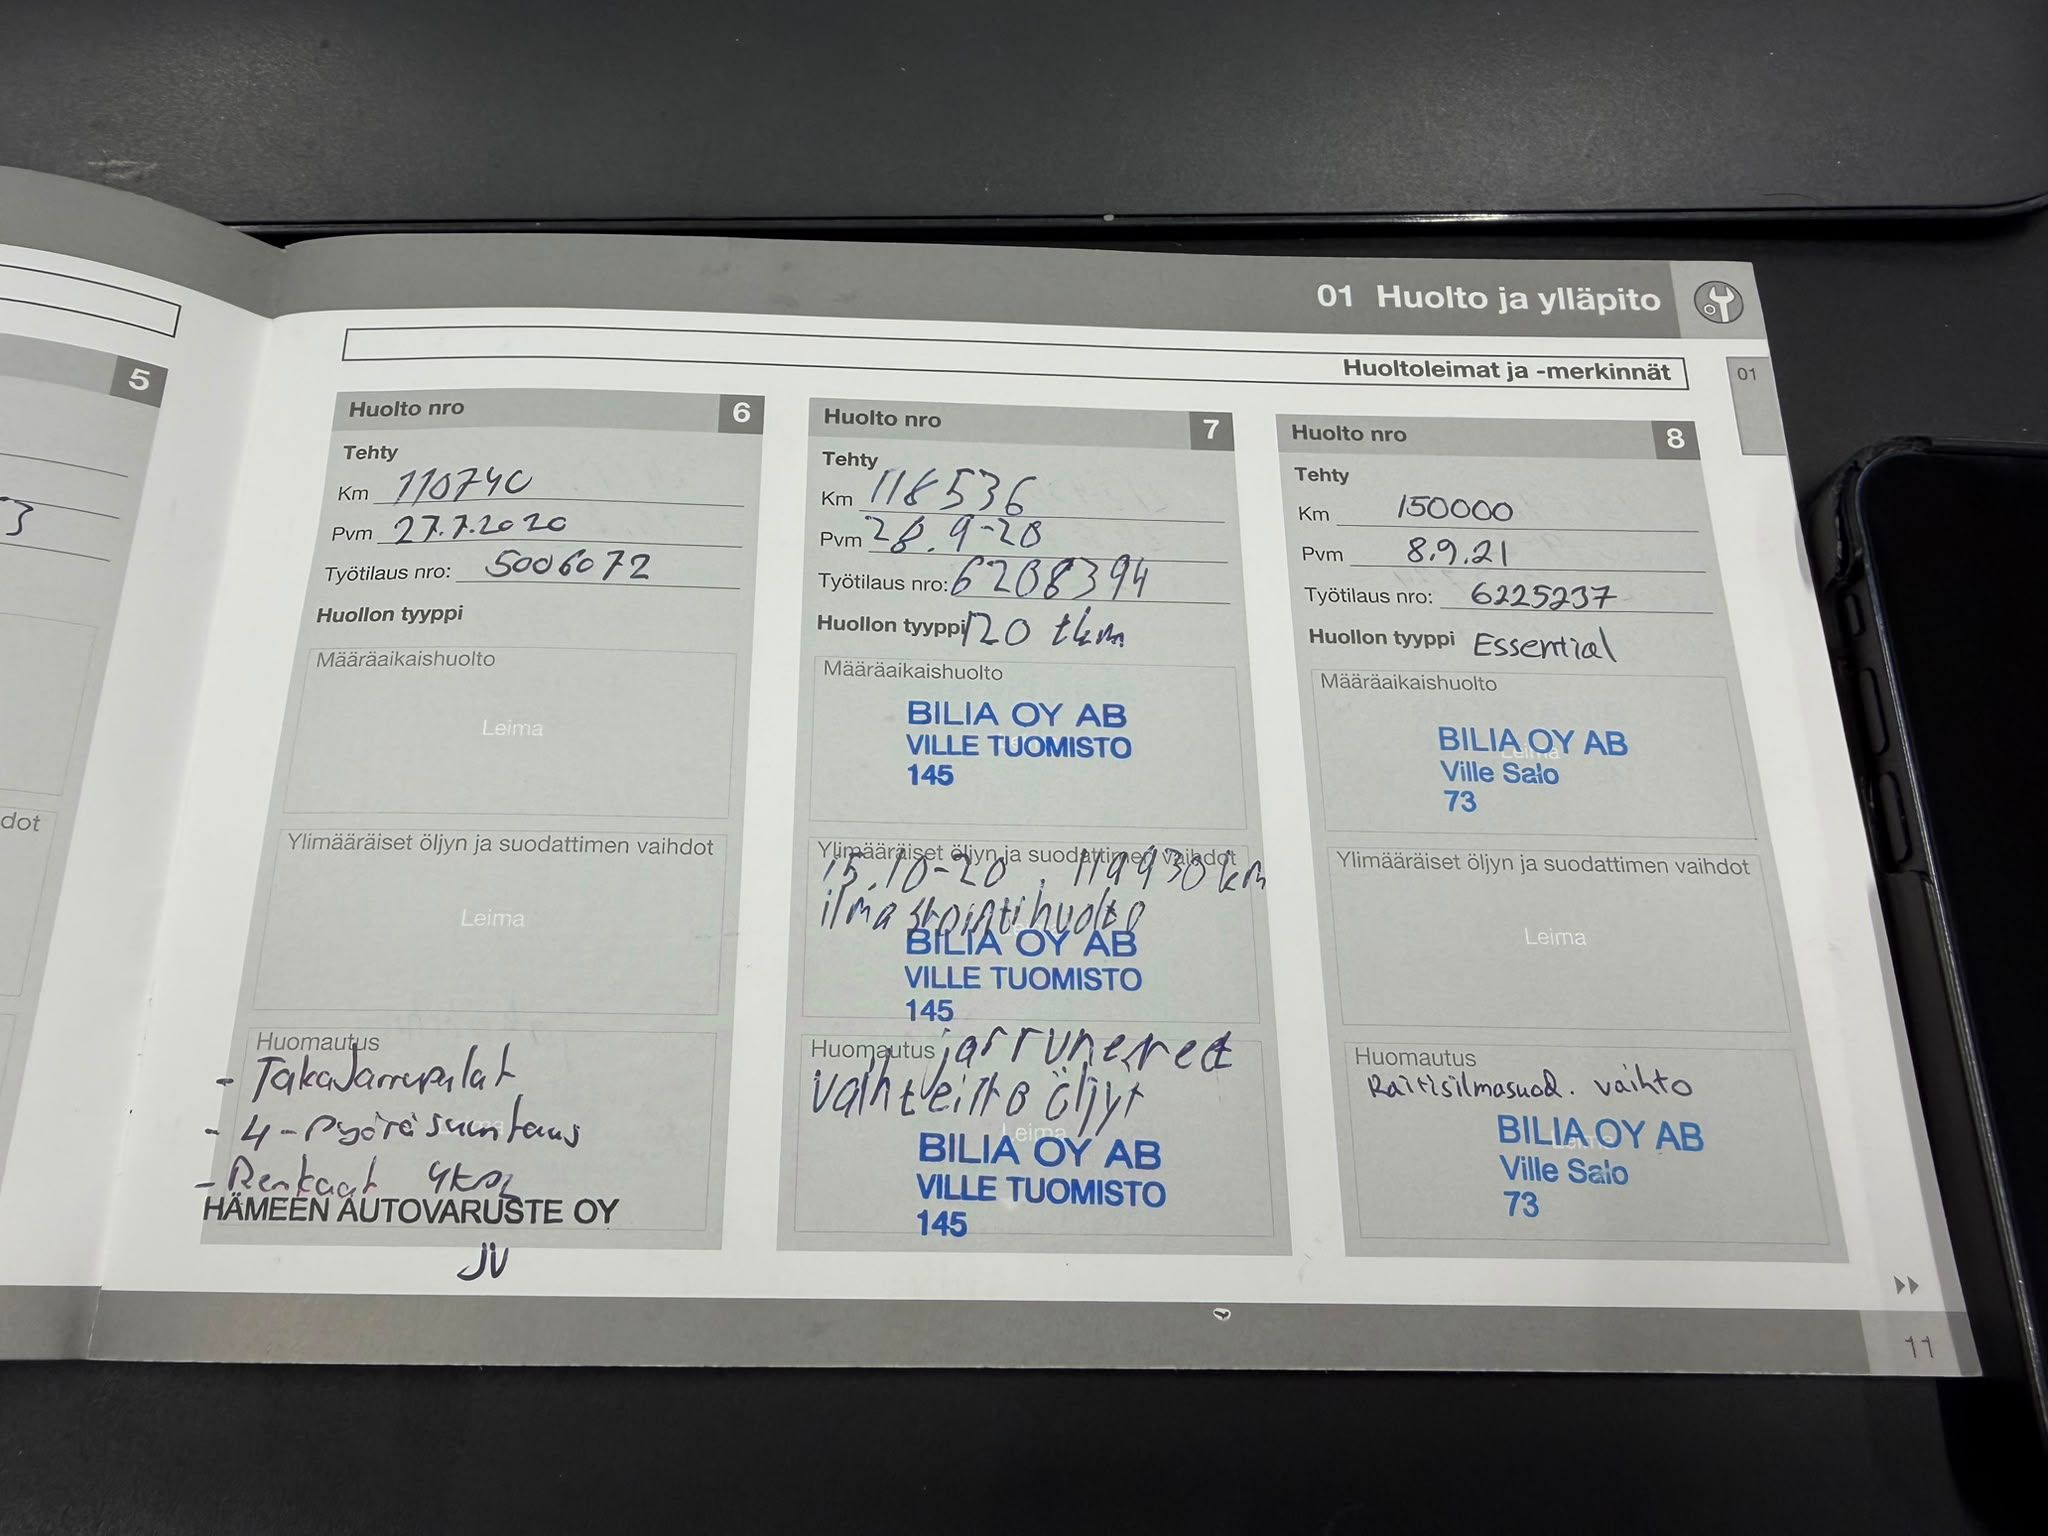 01 Huolto ja ylläpito
Huoltoleimat ja -merkinnät
01
5
3
dot
Huolto nro 6
Tehty
Km 110740
Pvm 27.7.2020
Työtilaus nro: 5006072
Huollon tyyppi
Määräaikaishuolto
Leima
Ylimääräiset öljyn ja suodattimen vaihdot
Leima
Huomautus
- TakaJarrupalat
- 4-Pyöräsuuntaus
- Renkaat 4kpl
HÄMEEN AUTOVARUSTE OY
JV
Huolto nro 7
Tehty
Km 118536
Pvm 28.9-20
Työtilaus nro: 6208394
Huollon tyyppi 120 tkm
Määräaikaishuolto
BILIA OY AB
VILLE TUOMISTO
145
Ylimääräiset öljyn ja suodattimen vaihdot
15.10-20 . 119930 km
ilmastointihuolto
BILIA OY AB
VILLE TUOMISTO
145
Huomautus jarruneneet
vaihteisto öljyt
Leima
BILIA OY AB
VILLE TUOMISTO
145
Huolto nro 8
Tehty
Km 150000
Pvm 8.9.21
Työtilaus nro: 6225237
Huollon tyyppi Essential
Määräaikaishuolto
Leima
BILIA OY AB
Ville Salo
73
Ylimääräiset öljyn ja suodattimen vaihdot
Leima
Huomautus
Raitisilmasuod. vaihto
BILIA OY AB
Ville Salo
73
11